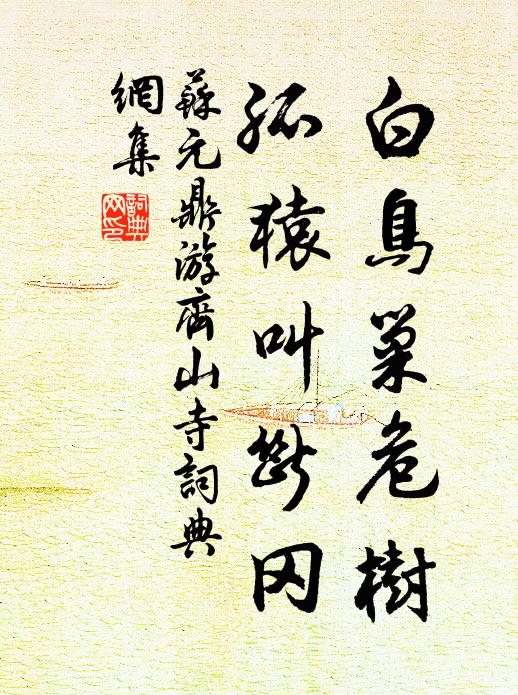 白鳥巢危樹
孤猿叫斷冈
蘇元鼎游齊山寺詞典
網集
詞典
网印